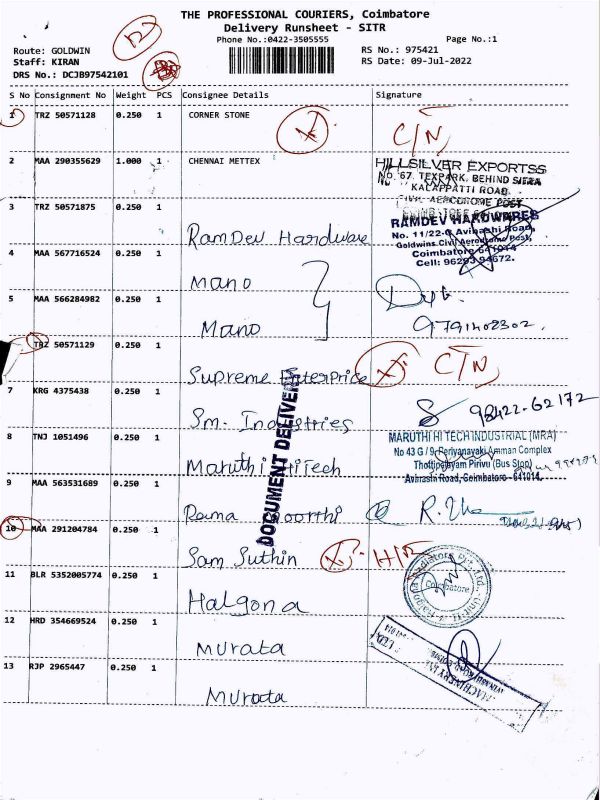 THE PROFESSIONAL COURIERS, Coimbatore
Delivery Runsheet - SITR
Phone No.:0422-3505555 Page No.:1
Route: GOLDWIN
Staff: KIRAN
DRS No.: DCJB97542101
RS No.: 975421
RS Date: 09-Jul-2022
S No Consignment No Weight PCS Consignee Details Signature
1 TRZ 50571128 0.250 1 CORNER STONE C/N
2 MAA 290355629 1.000 1 CHENNAI METTEX
HILLSILVER EXPORTSS
No. 67. TEXPARK, BEHIND SITRA
KALAPPATTI ROAD
CIVIL AERODROME POST
3 TRZ 50571875 0.250 1 RamDev Hardware
RAMDEV HARDWARES
No. 11/22-C Avinashi Road,
Goldwins Civil Aerodrome Post,
Coimbatore 641014
Cell: 96293 94672.
4 MAA 567716524 0.250 1 Mano
5 MAA 566284982 0.250 1 Mano
9791402302.
TRZ 50571129 0.250 1 Supreme Enterprice C/N
7 KRG 4375438 0.250 1 Sm. Industries 98422-62172
8 TNJ 1051496 0.250 1 Maruthi HiTech
MARUTHI HI TECH INDUSTRIAL (MRA)
No 43 G / 9, Periyanayaki Amman Complex
Thottipalayam Pirivu (Bus Stop)
Avinashi Road, Coimbatore - 641014.
9 MAA 563531689 0.250 1 Rama Moorthi
10 MAA 291204784 0.250 1 Sam Suthin
11 BLR 5352005774 0.250 1 Halgona
Coimbatore
12 HRD 354669524 0.250 1 Murata
13 RJP 2965447 0.250 1 Murata
DOCUMENT DELIVERY